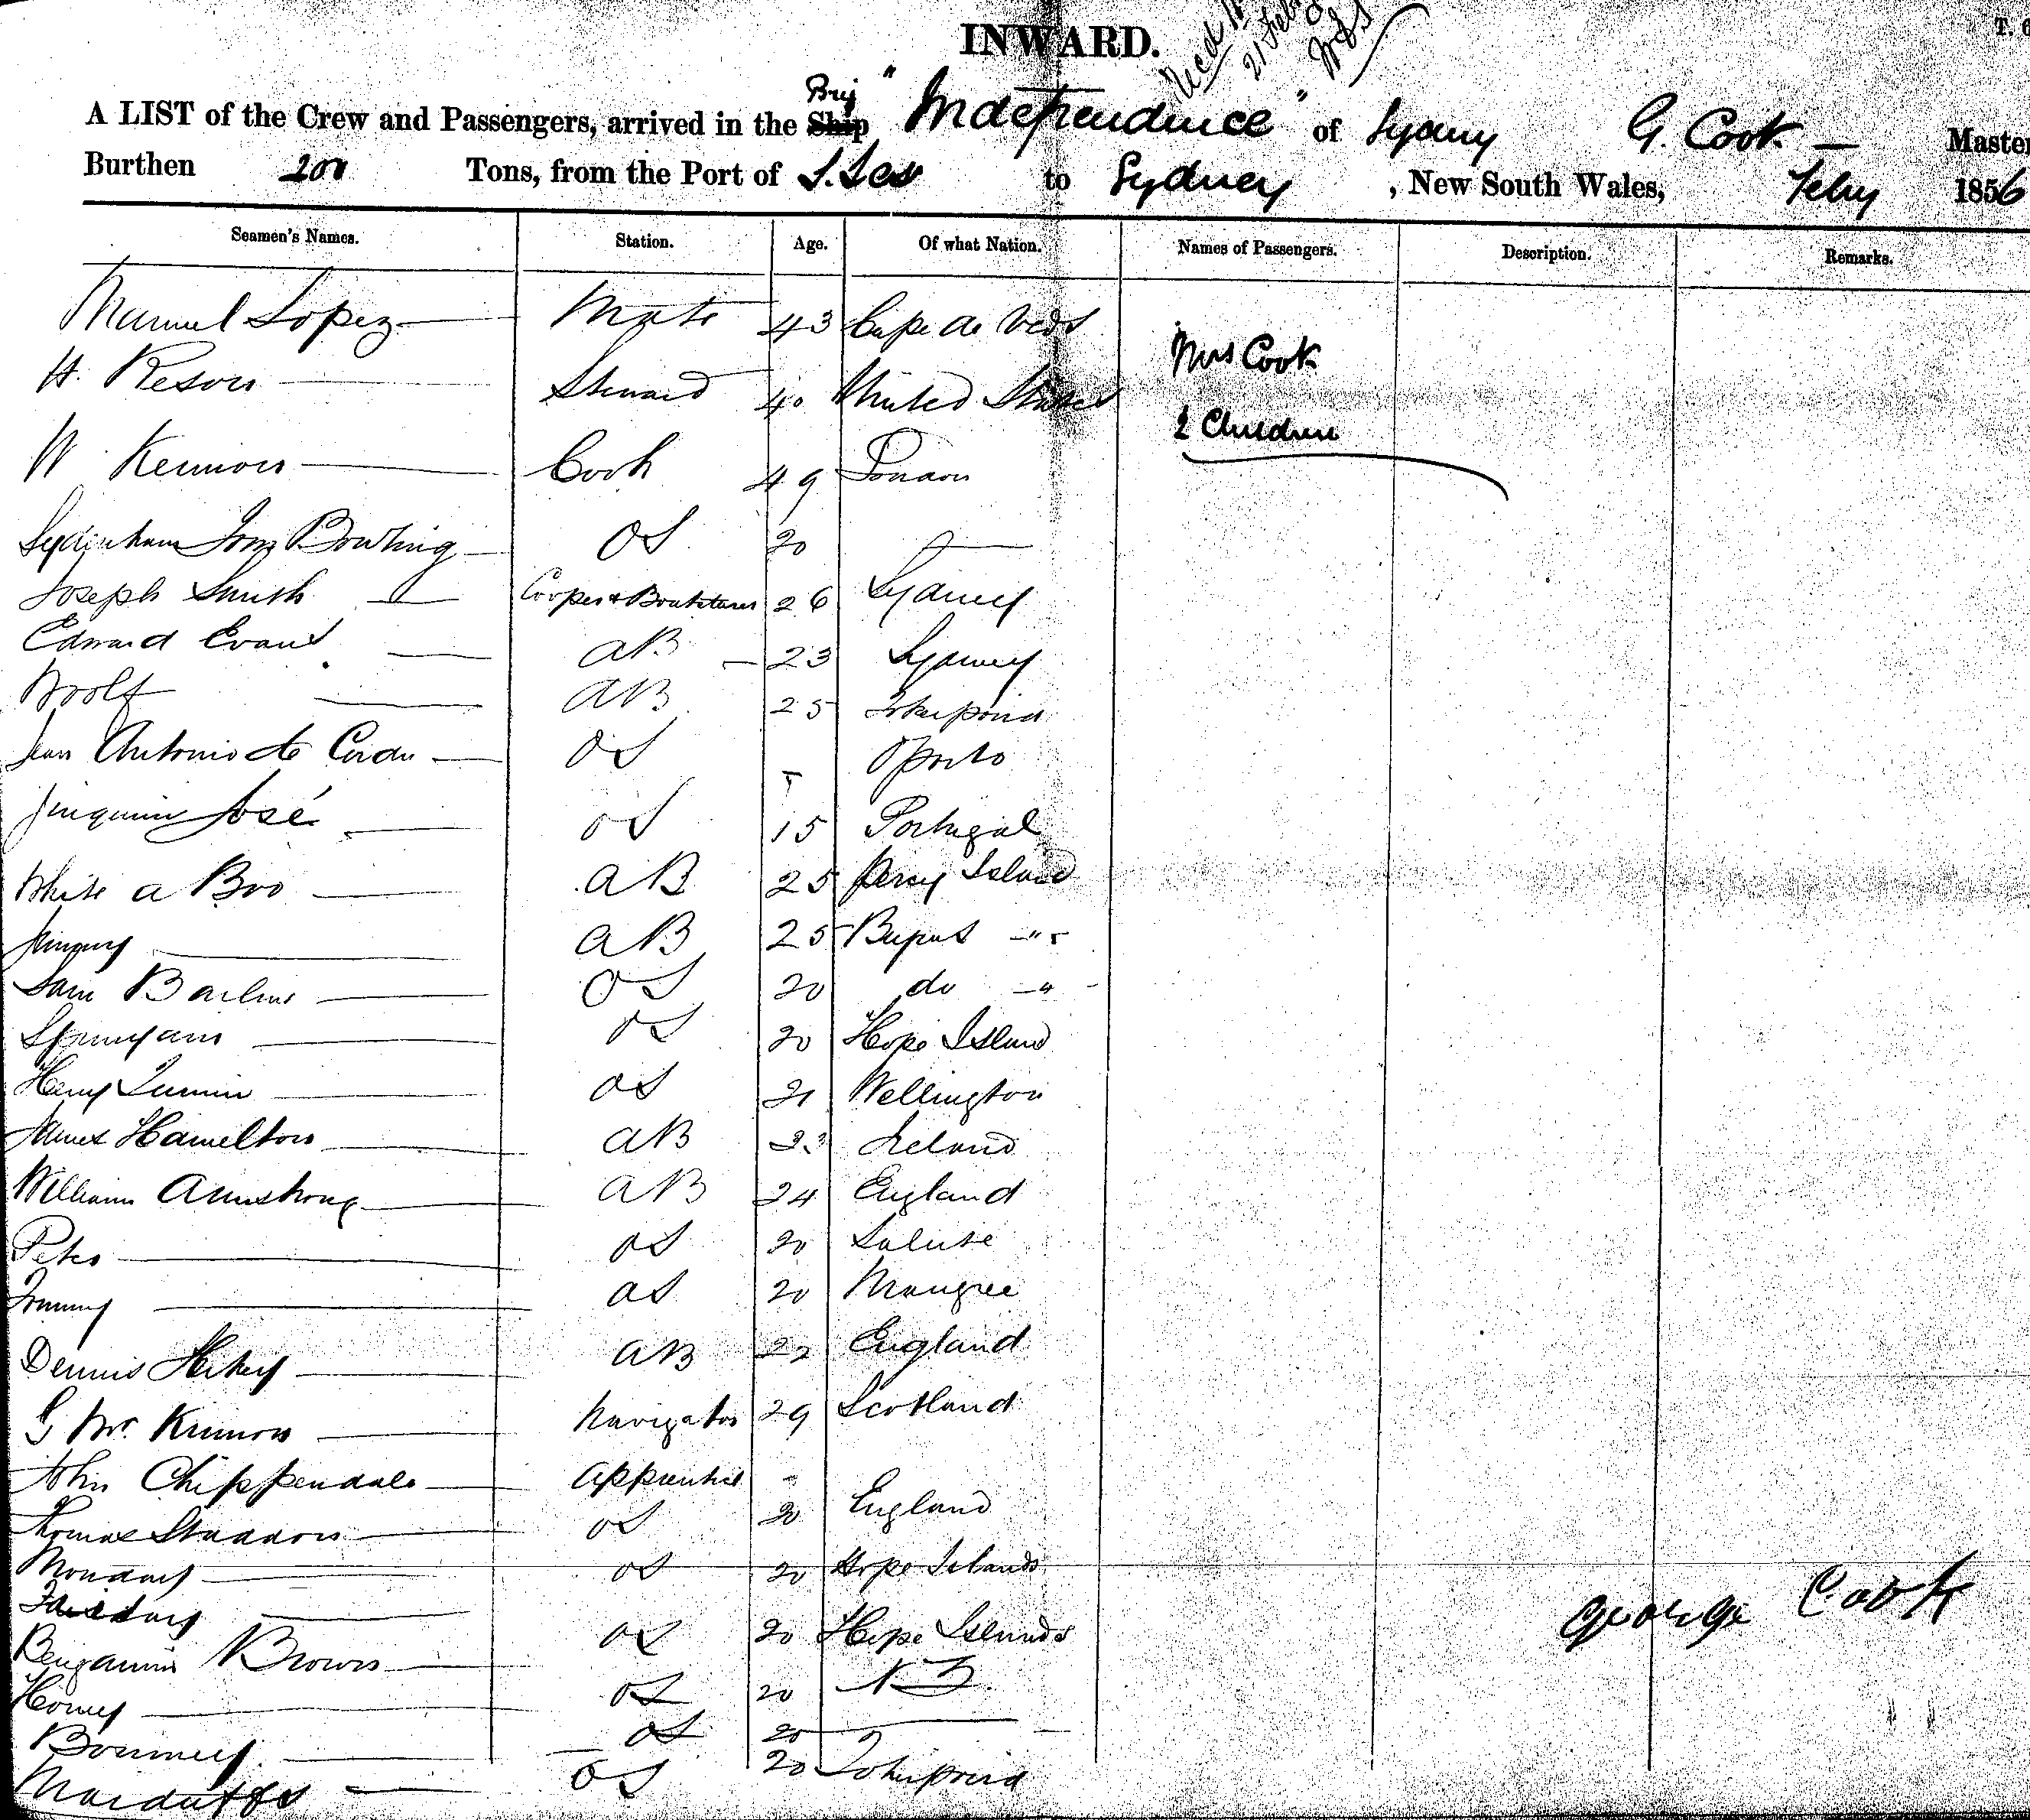 INWARD.
21 Feby
A LIST of the Crew and Passengers, arrived in the Ship Brig "Independence" of Sydney G. Cook — Master
Burthen 200 Tons, from the Port of S. Seas to Sydney, New South Wales, Feby 1856
Seamen's Names. Station. Age. Of what Nation. Names of Passengers. Description. Remarks.
Manuel Lopez Mate 43 Cape de Verds
Mrs Cook
H. Steward 40 United States
2 Children
W Cook 49 London
Sydenham Bowling OS 20 —
Joseph Smith Cooper & Boatsteerer 26 Sydney
Edward Evans AB 23 Sydney
Woolf AB 25
Antonio de OS Oporto
José OS 15 Portugal
White a Boo AB 25 Island
Jimmy AB 25 "
Sam OS 20 do "
OS 20 Hope Island
Henry OS 21 Wellington
James Hamilton AB Ireland
William Armstrong AB 24 England
Peter OS 20
Tommy 20
Dennis AB 22 England
G Mc Kinnon Navigator 29 Scotland
John Chippendale Apprentice "
Thomas OS 20 England
Monday OS 20 Hope Islands
OS 20 Hope Islands
Benjamin Brown
OS 20 N Z.
OS 20 —
OS 20
George Cook